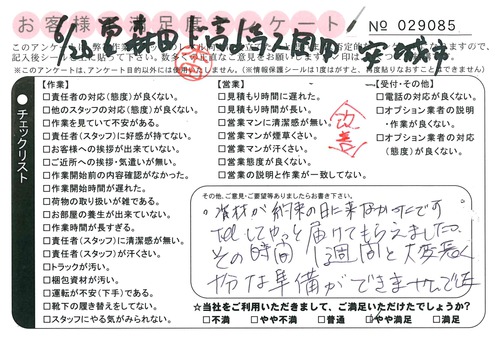 お客様満足度アンケート
No 029085
6/2 営 森田 安城市
記入後シールを
※このアンケートは、アンケート目的以外には使用いたしません。(※情報保護シールは1度がすと、再度貼りなおすことができません)
チェックリスト
【作業】
□責任者の対応(態度)が良くない。
□他のスタッフの対応(態度)が良くない。
□作業を見ていて不安がある。
□責任者(スタッフ)に好感が持てない。
□お客様への挨拶が出来ていない。
□ご近所への挨拶・気遣いが無い。
□作業開始前の内容確認がなかった。
□作業開始時間が遅れた。
□荷物の取り扱いが雑である。
□お部屋の養生が出来ていない。
□作業時間が長すぎる。
□責任者(スタッフ)に清潔感が無い。
□責任者(スタッフ)が汗くさい。
□トラックが汚い。
□梱包資材が汚い。
□運転が不安(下手)である。
□靴下の履き替えをしてない。
□スタッフにやる気がみられない。
【営業】
□見積もり時間に遅れた。
□見積もり時間が長い。
□営業マンに清潔感が無い。
□営業マンが煙草くさい。
□営業マンが汗くさい。
□営業態度が良くない。
□営業の説明と作業が一致してない。
改善
【受付・その他】
□電話の対応が良くない。
□オプション業者の説明
・作業が良くない。
□オプション業者の対応
(態度)が良くない。
その他、ご意見・ご要望等ありましたらお書き下さい。
資材が約束の日に来なかったです
telしてやっと届けてもらえました。
その時間 1週間と大変長く
な準備ができませんでした
☆当社をご利用いただきまして、ご満足いただけたでしょうか?
□不満 □やや不満 □普通 □やや満足 □満足